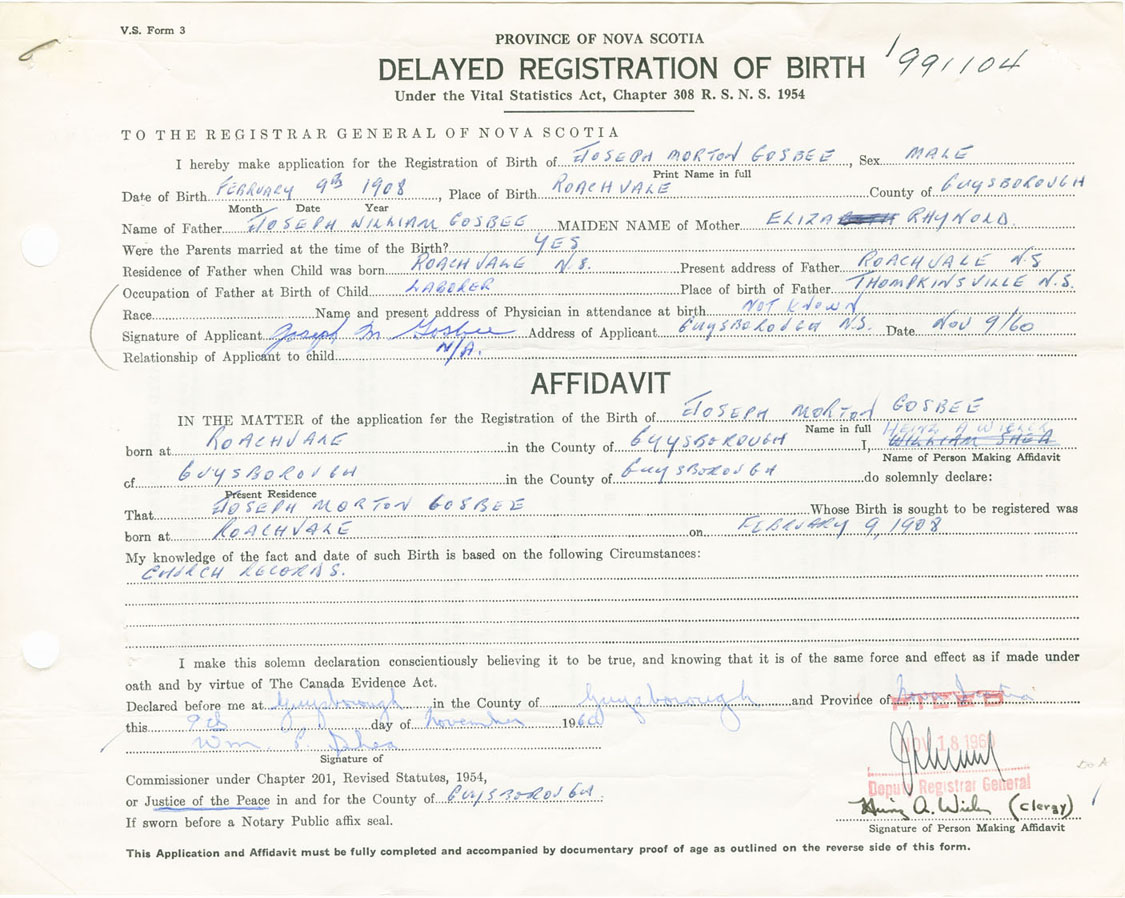 V.S. Form 3
PROVINCE OF NOVA SCOTIA
DELAYED REGISTRATION OF BIRTH 1991104
Under the Vital Statistics Act, Chapter 308 R. S. N. S. 1954
TO THE REGISTRAR GENERAL OF NOVA SCOTIA
I hereby make application for the Registration of Birth of JOSEPH MORTON GOSBEE, Sex MALE
Print Name in full
Date of Birth FEBRUARY 9th 1908, Place of Birth ROACHVALE County of GUYSBOROUGH
Month Date Year
Name of Father JOSEPH WILLIAM GOSBEE MAIDEN NAME of Mother ELIZA RHYNOLD
Were the Parents married at the time of the Birth? YES
Residence of Father when Child was born ROACHVALE N.S. Present address of Father ROACHVALE N.S
Occupation of Father at Birth of Child LABORER Place of birth of Father THOMPKINSVILLE N.S.
Race Name and present address of Physician in attendance at birth NOT KNOWN
Signature of Applicant Joseph M Gosbee Address of Applicant GUYSBOROUGH N.S. Date NOV 9/60
Relationship of Applicant to child N/A.
AFFIDAVIT
IN THE MATTER of the application for the Registration of the Birth of JOSEPH MORTON GOSBEE
Name in full
born at ROACHVALE in the County of GUYSBOROUGH I, WILLIAM SHEA
Name of Person Making Affidavit
of GUYSBOROUGH in the County of GUYSBOROUGH do solemnly declare:
Present Residence
That JOSEPH MORTON GOSBEE Whose Birth is sought to be registered was
born at ROACHVALE on FEBRUARY 9, 1908
My knowledge of the fact and date of such Birth is based on the following Circumstances:
CHURCH RECORDS.
I make this solemn declaration conscientiously believing it to be true, and knowing that it is of the same force and effect as if made under
oath and by virtue of The Canada Evidence Act.
Declared before me at Guysborough in the County of Guysborough and Province of Nova Scotia
FILED
this 9th day of November 1960
NOV 18 1960
Wm. P. Shea
Signature of
Commissioner under Chapter 201, Revised Statutes, 1954,
Deputy Registrar General
or Justice of the Peace in and for the County of GUYSBOROUGH.
A. (Clergy)
If sworn before a Notary Public affix seal.
Signature of Person Making Affidavit
This Application and Affidavit must be fully completed and accompanied by documentary proof of age as outlined on the reverse side of this form.